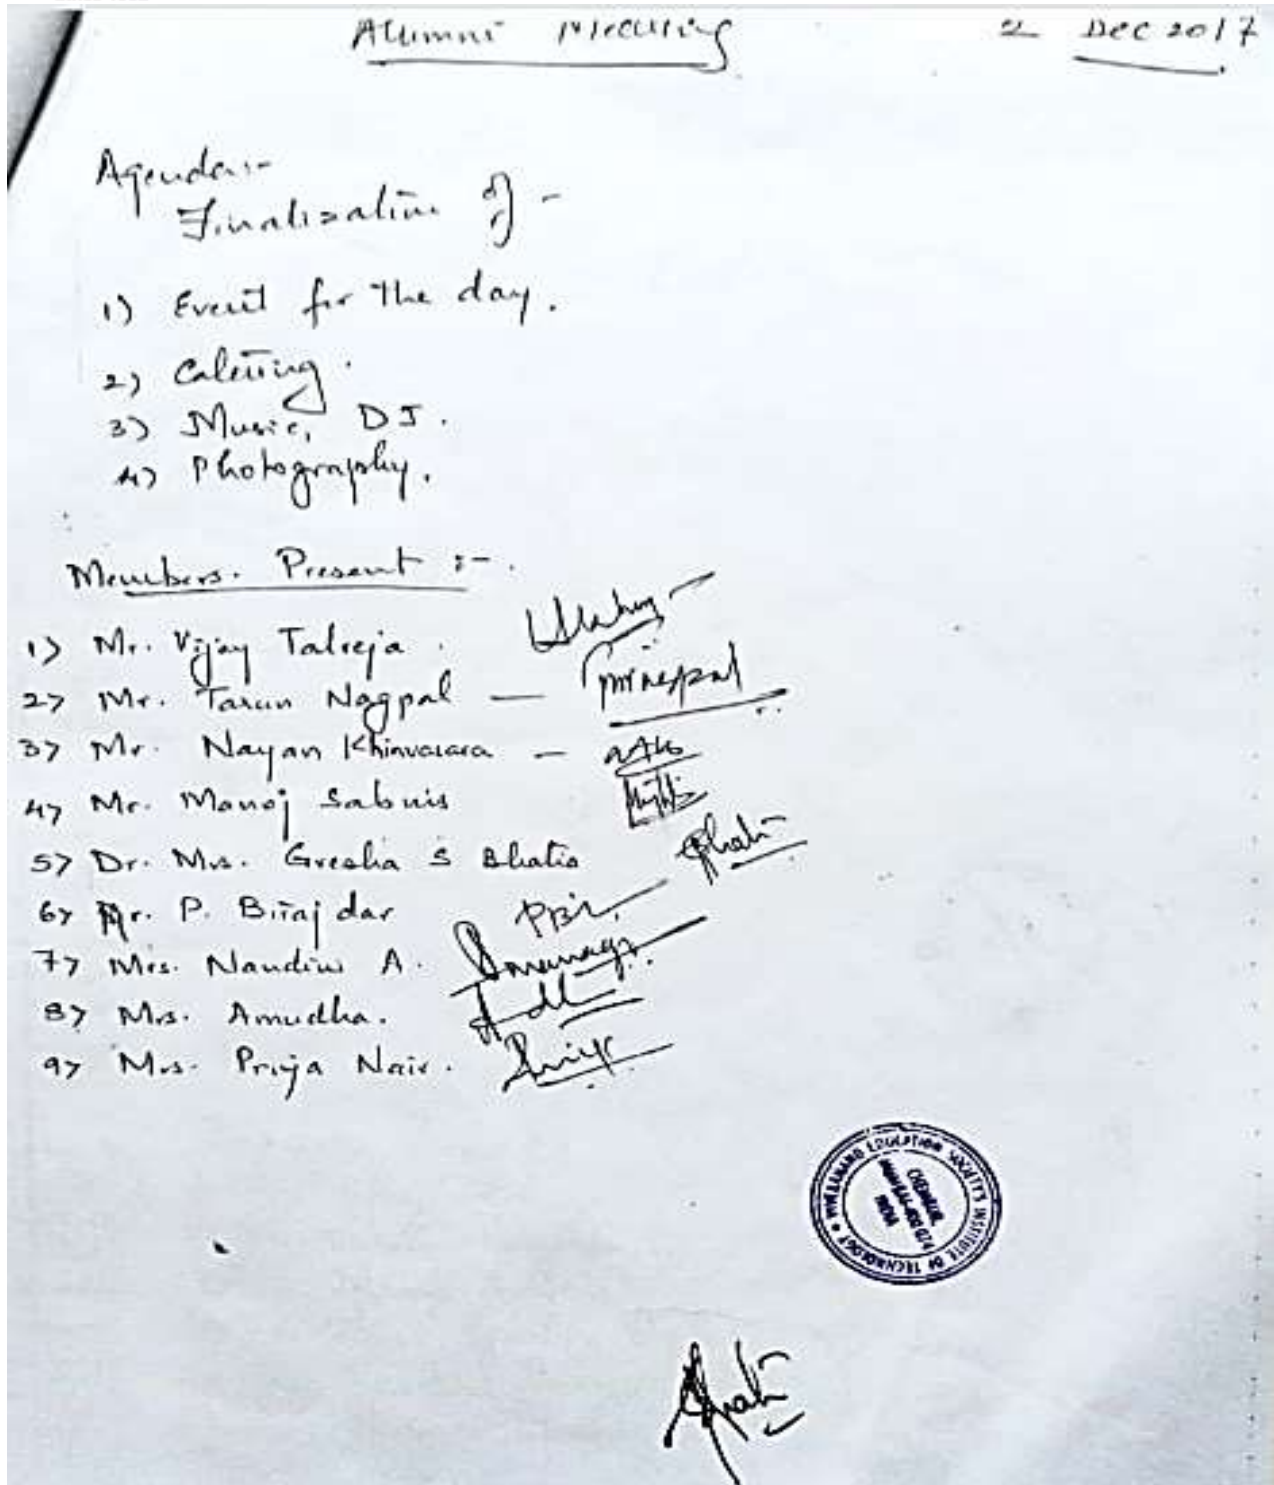 Alumni Meeting 2 Dec 2017
Agenda:-
Finalization of -
1) Event for the day.
2) Catering.
3) Music, DJ.
4) Photography.
Members Present :-
1) Mr. Vijay Talreja.
2) Mr. Tarun Nagpal —
3) Mr. Nayan Khinvasara —
4) Mr. Manoj Sabnis
5) Dr. Mrs. Gresha S Bhatia
6) Mr. P. Birajdar
7) Mrs. Nandini A.
8) Mrs. Amudha.
9) Mrs. Priya Nair.
VIVEKANAND EDUCATION SOCIETY'S INSTITUTE OF TECHNOLOGY
CHEMBUR,
MUMBAI-400 074
INDIA